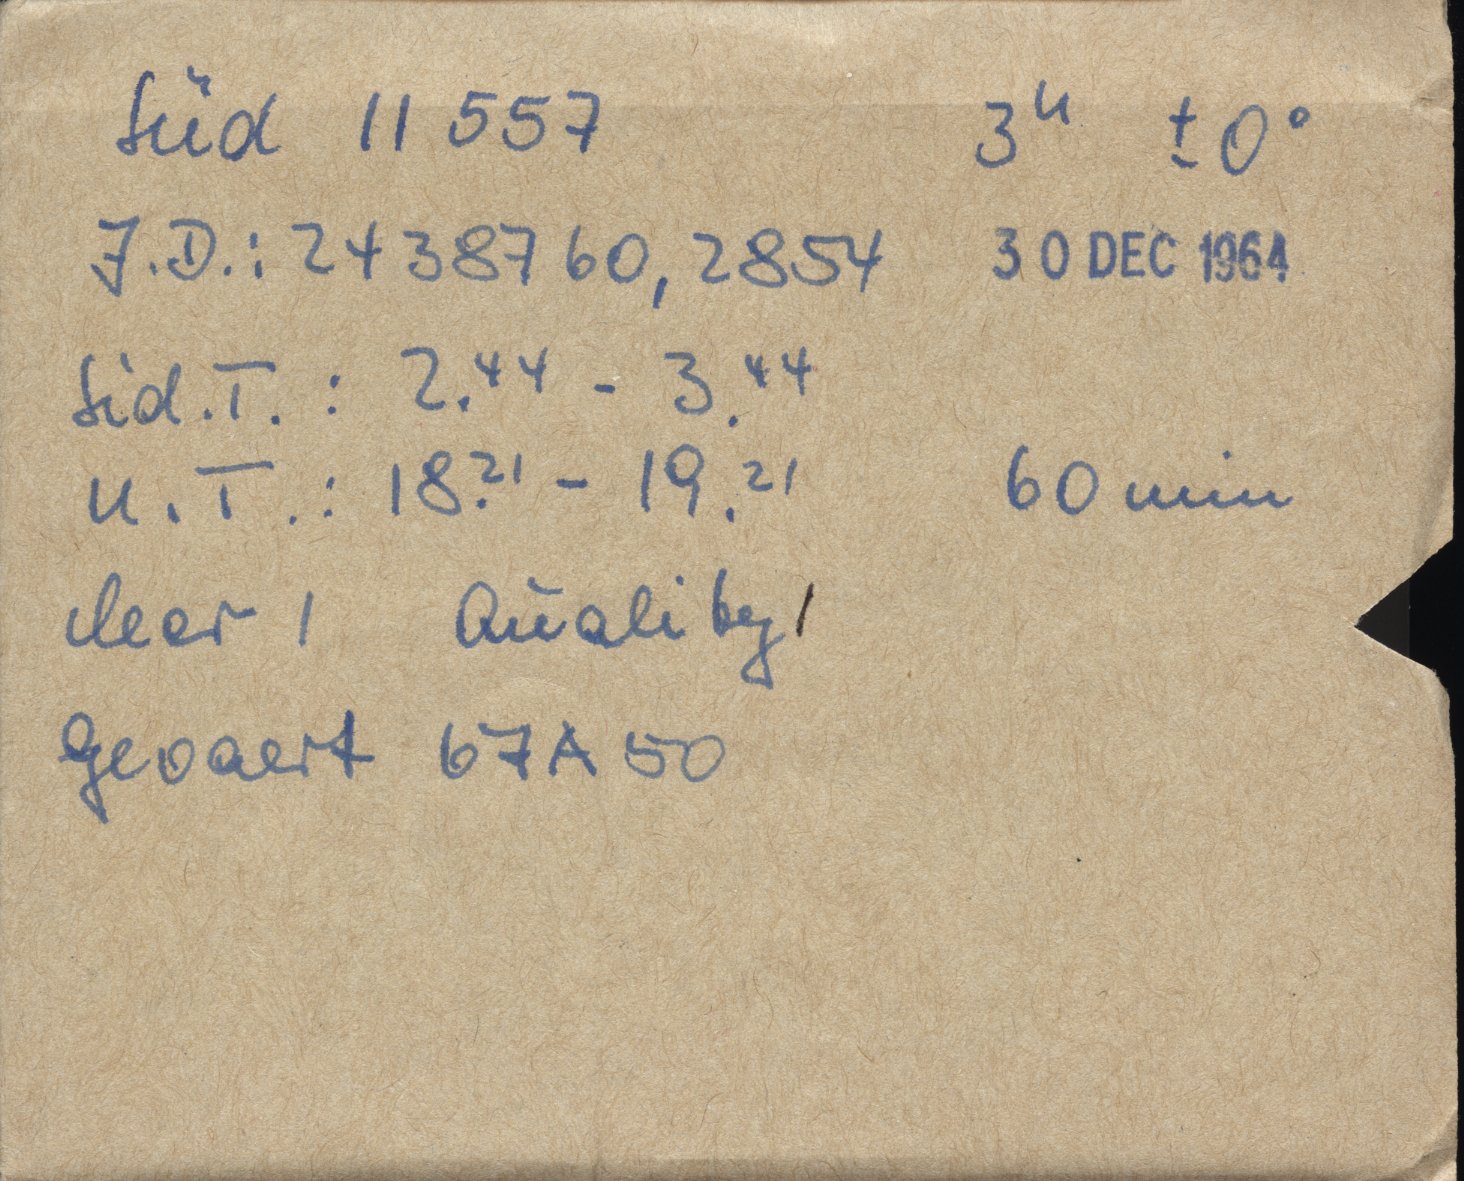 Süd 11557 3ʰ ±0°
J.D.: 2438760,2854 30 DEC 1964
Sid.T.: 2.⁴⁴ - 3.⁴⁴
U.T.: 18.²¹ - 19.²¹ 60 min
clear 1 Quality 1
Gevaert 67A50